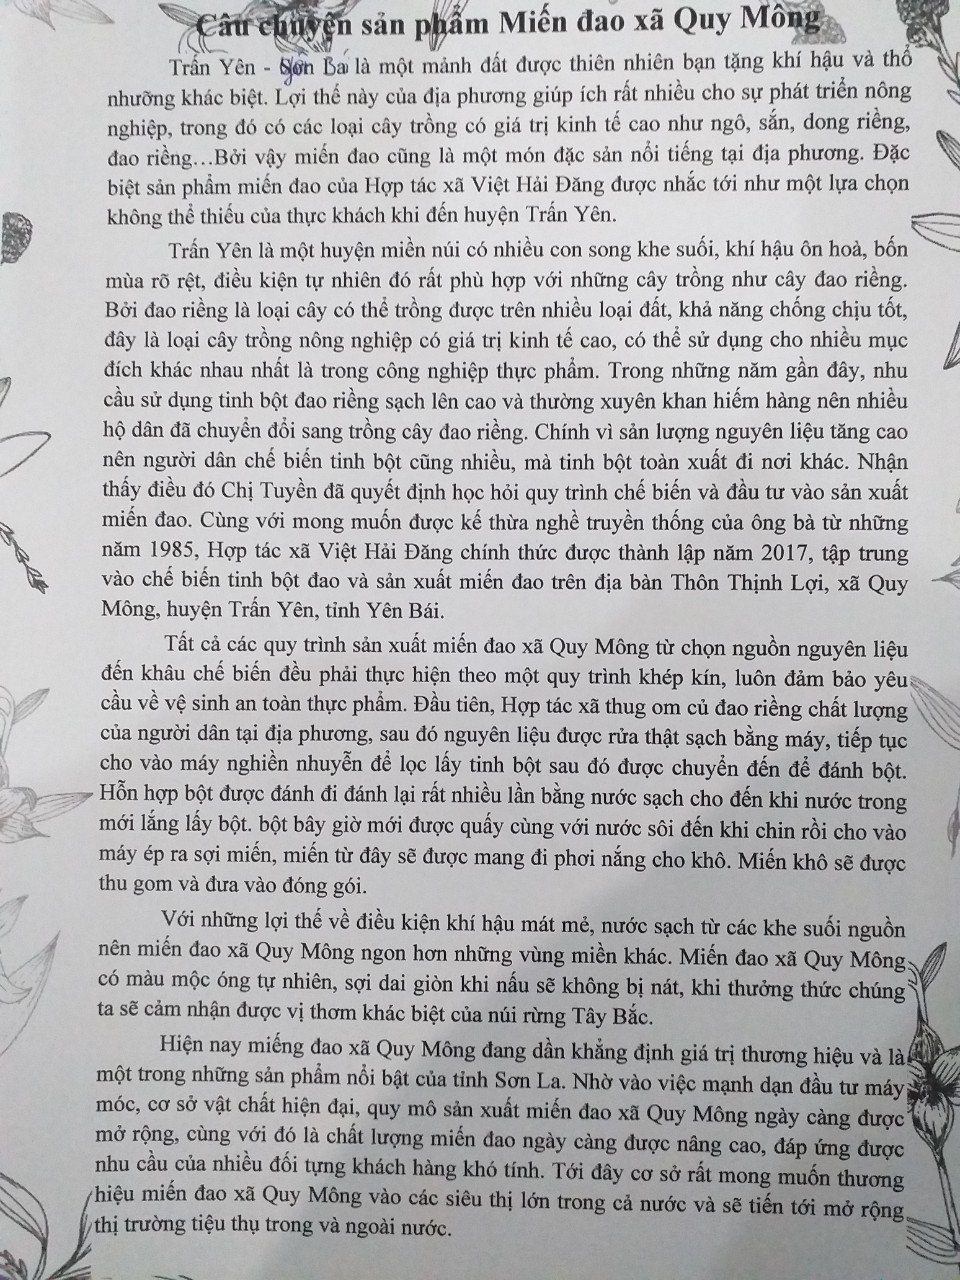 Câu chuyện sản phẩm Miến đao xã Quy Mông
Trấn Yên - là một mảnh đất được thiên nhiên bạn tặng khí hậu và thổ
nhưỡng khác biệt. Lợi thế này của địa phương giúp ích rất nhiều cho sự phát triển nông
nghiệp, trong đó có các loại cây trồng có giá trị kinh tế cao như ngô, sắn, dong riềng,
đao riềng…Bởi vậy miến đao cũng là một món đặc sản nổi tiếng tại địa phương. Đặc
biệt sản phẩm miến đao của Hợp tác xã Việt Hải Đăng được nhắc tới như một lựa chọn
không thể thiếu của thực khách khi đến huyện Trấn Yên.
Trấn Yên là một huyện miền núi có nhiều con song khe suối, khí hậu ôn hoà, bốn
mùa rõ rệt, điều kiện tự nhiên đó rất phù hợp với những cây trồng như cây đao riềng.
Bởi đao riềng là loại cây có thể trồng được trên nhiều loại đất, khả năng chống chịu tốt,
đây là loại cây trồng nông nghiệp có giá trị kinh tế cao, có thể sử dụng cho nhiều mục
đích khác nhau nhất là trong công nghiệp thực phẩm. Trong những năm gần đây, nhu
cầu sử dụng tinh bột đao riềng sạch lên cao và thường xuyên khan hiếm hàng nên nhiều
hộ dân đã chuyển đổi sang trồng cây đao riềng. Chính vì sản lượng nguyên liệu tăng cao
nên người dân chế biến tinh bột cũng nhiều, mà tinh bột toàn xuất đi nơi khác. Nhận
thấy điều đó Chị Tuyền đã quyết định học hỏi quy trình chế biến và đầu tư vào sản xuất
miến đao. Cùng với mong muốn được kế thừa nghề truyền thống của ông bà từ những
năm 1985, Hợp tác xã Việt Hải Đăng chính thức được thành lập năm 2017, tập trung
vào chế biến tinh bột đao và sản xuất miến đao trên địa bàn Thôn Thịnh Lợi, xã Quy
Mông, huyện Trấn Yên, tỉnh Yên Bái.
Tất cả các quy trình sản xuất miến đao xã Quy Mông từ chọn nguồn nguyên liệu
đến khâu chế biến đều phải thực hiện theo một quy trình khép kín, luôn đảm bảo yêu
cầu về vệ sinh an toàn thực phẩm. Đầu tiên, Hợp tác xã thug om củ đao riềng chất lượng
của người dân tại địa phương, sau đó nguyên liệu được rửa thật sạch bằng máy, tiếp tục
cho vào máy nghiền nhuyễn để lọc lấy tinh bột sau đó được chuyển đến để đánh bột.
Hỗn hợp bột được đánh đi đánh lại rất nhiều lần bằng nước sạch cho đến khi nước trong
mới lắng lấy bột. bột bây giờ mới được quấy cùng với nước sôi đến khi chin rồi cho vào
máy ép ra sợi miến, miến từ đây sẽ được mang đi phơi nắng cho khô. Miến khô sẽ được
thu gom và đưa vào đóng gói.
Với những lợi thế về điều kiện khí hậu mát mẻ, nước sạch từ các khe suối nguồn
nên miến đao xã Quy Mông ngon hơn những vùng miền khác. Miến đao xã Quy Mông
có màu mộc óng tự nhiên, sợi dai giòn khi nấu sẽ không bị nát, khi thưởng thức chúng
ta sẽ cảm nhận được vị thơm khác biệt của núi rừng Tây Bắc.
Hiện nay miếng đao xã Quy Mông đang dần khẳng định giá trị thương hiệu và là
một trong những sản phẩm nổi bật của tỉnh Sơn La. Nhờ vào việc mạnh dạn đầu tư máy
móc, cơ sở vật chất hiện đại, quy mô sản xuất miến đao xã Quy Mông ngày càng được
mở rộng, cùng với đó là chất lượng miến đao ngày càng được nâng cao, đáp ứng được
nhu cầu của nhiều đối tựng khách hàng khó tính. Tới đây cơ sở rất mong muốn thương
hiệu miến đao xã Quy Mông vào các siêu thị lớn trong cả nước và sẽ tiến tới mở rộng
thị trường tiệu thụ trong và ngoài nước.